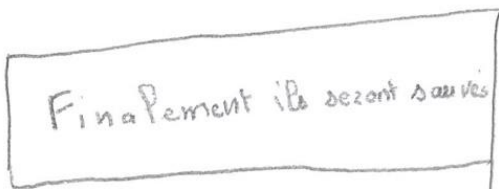 Finalement ils seront sauvés